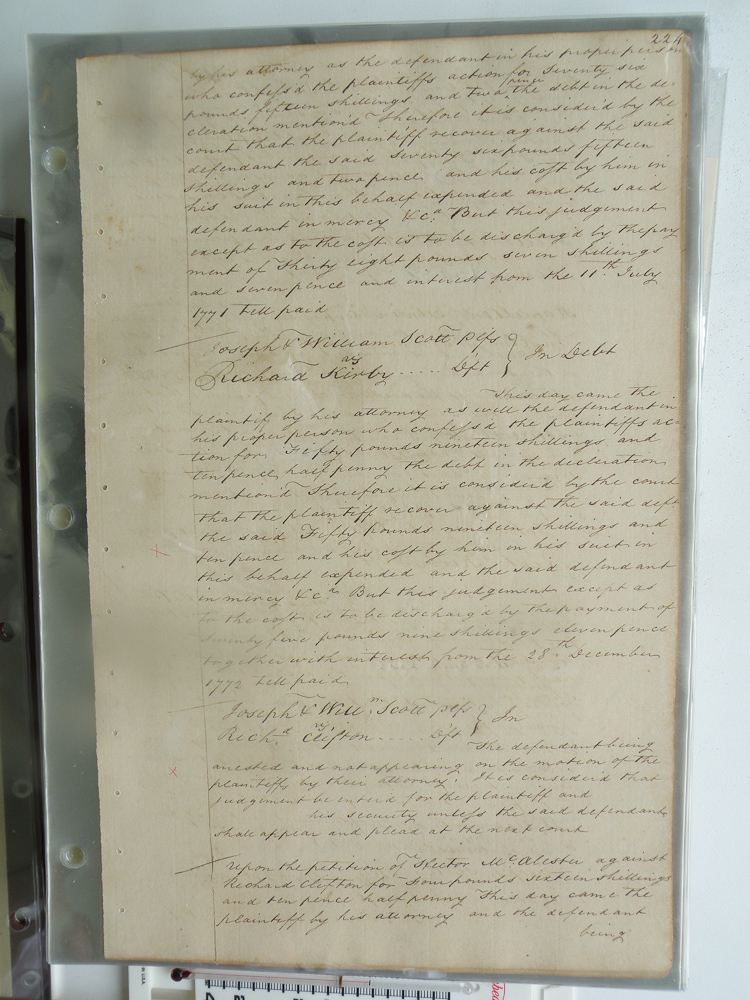 224
by his attorney as the defendant in his proper person
who confess'd the plaintiffs action for Seventy six
pounds fifteen shillings and two pence the debt in the de-
claration mention'd Therefore it is consider'd by the
court that the plaintiff recover against the said
defendant the said Seventy six pounds fifteen
shillings and two pence and his cost by him in
his suit in this behalf expended and the said
defendant in mercy &ca But this judgement
except as to the cost is to be discharg'd by the pay
ment of Thirty eight pounds seven shillings
and seven pence and interest from the 11th July
1771 till paid
Joseph & William Scott plfs
vs } In Debt
Richard Kirby ..... Dft
This day came the
plaintif by his attorney as well the defendant in
his proper person who confess'd the plaintiffs ac-
tion for Fifty pounds nineteen shillings and
ten pence half penny the debt in the declaration
mention'd Therefore it is consider'd by the court
that the plaintiff recover against the said deft
the said Fifty pounds nineteen shillings and
ten pence and his cost by him in his suit in
this behalf expended and the said defendant
in mercy &ca But this judgement except as
to the cost is to be discharg'd by the payment of
twenty five pounds nine shillings eleven pence
together with interest from the 28th December
1772 till paid
Joseph & Willm Scott plfs } In
vs
Richd Clifton ..... Dft
The defendant being
arrested and not appearing on the motion of the
plaintiffs by their attorney. It is consider'd that
judgement be enter'd for the plaintiff and
his security unless the said defendant
shall appear and plead at the next court
Upon the petition of Hector McAlester against
Richard Clifton for Four pounds sixteen shillings
and ten pence half penny This day came the
plaintiff by his attorney and the defendant
being